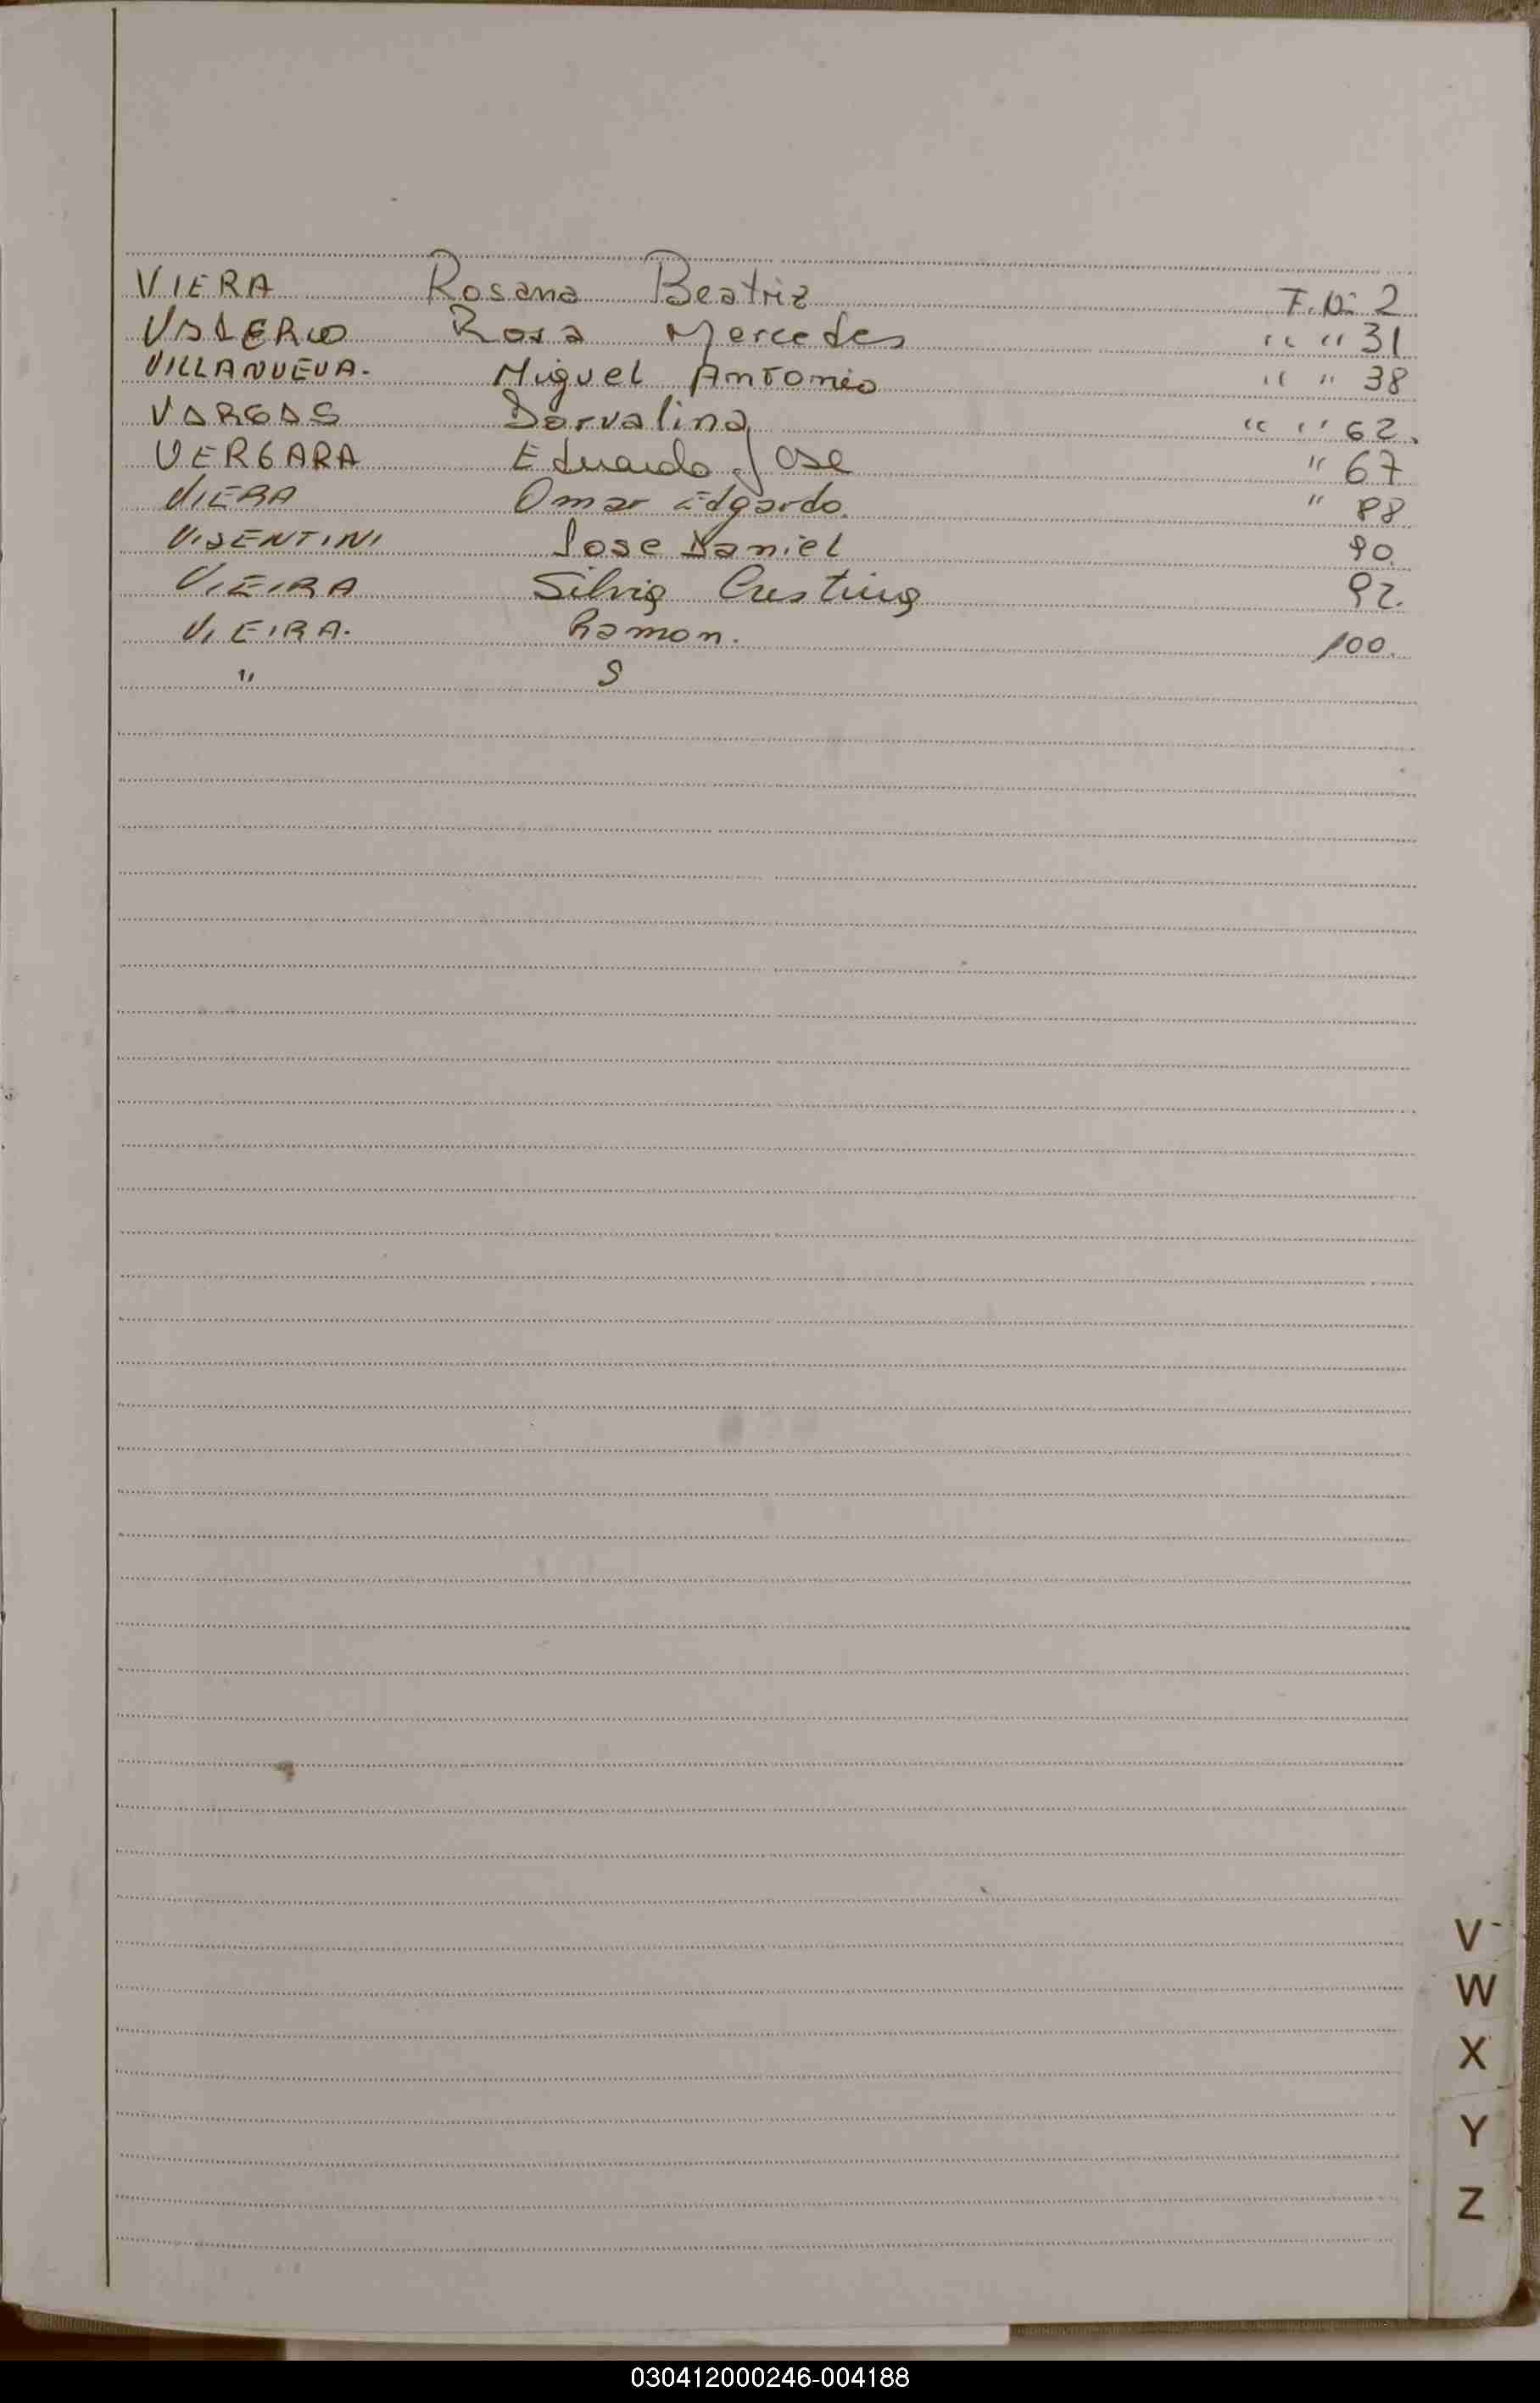 VIERA Rosana Beatriz F.Nº 2
VALERIO Rosa Mercedes " " 31
VILLANUEVA. Miguel Antonio " " 38
VARGAS Dorvalina " " 62.
VERGARA Eduardo Jose " 67
VIERA Omar Edgardo. " 88
VISENTINI Jose Daniel 90.
VIEIRA Silvia 92.
VIEIRA. Ramon. 100.
" S
V
W
X
Y
Z
030412000246-004188